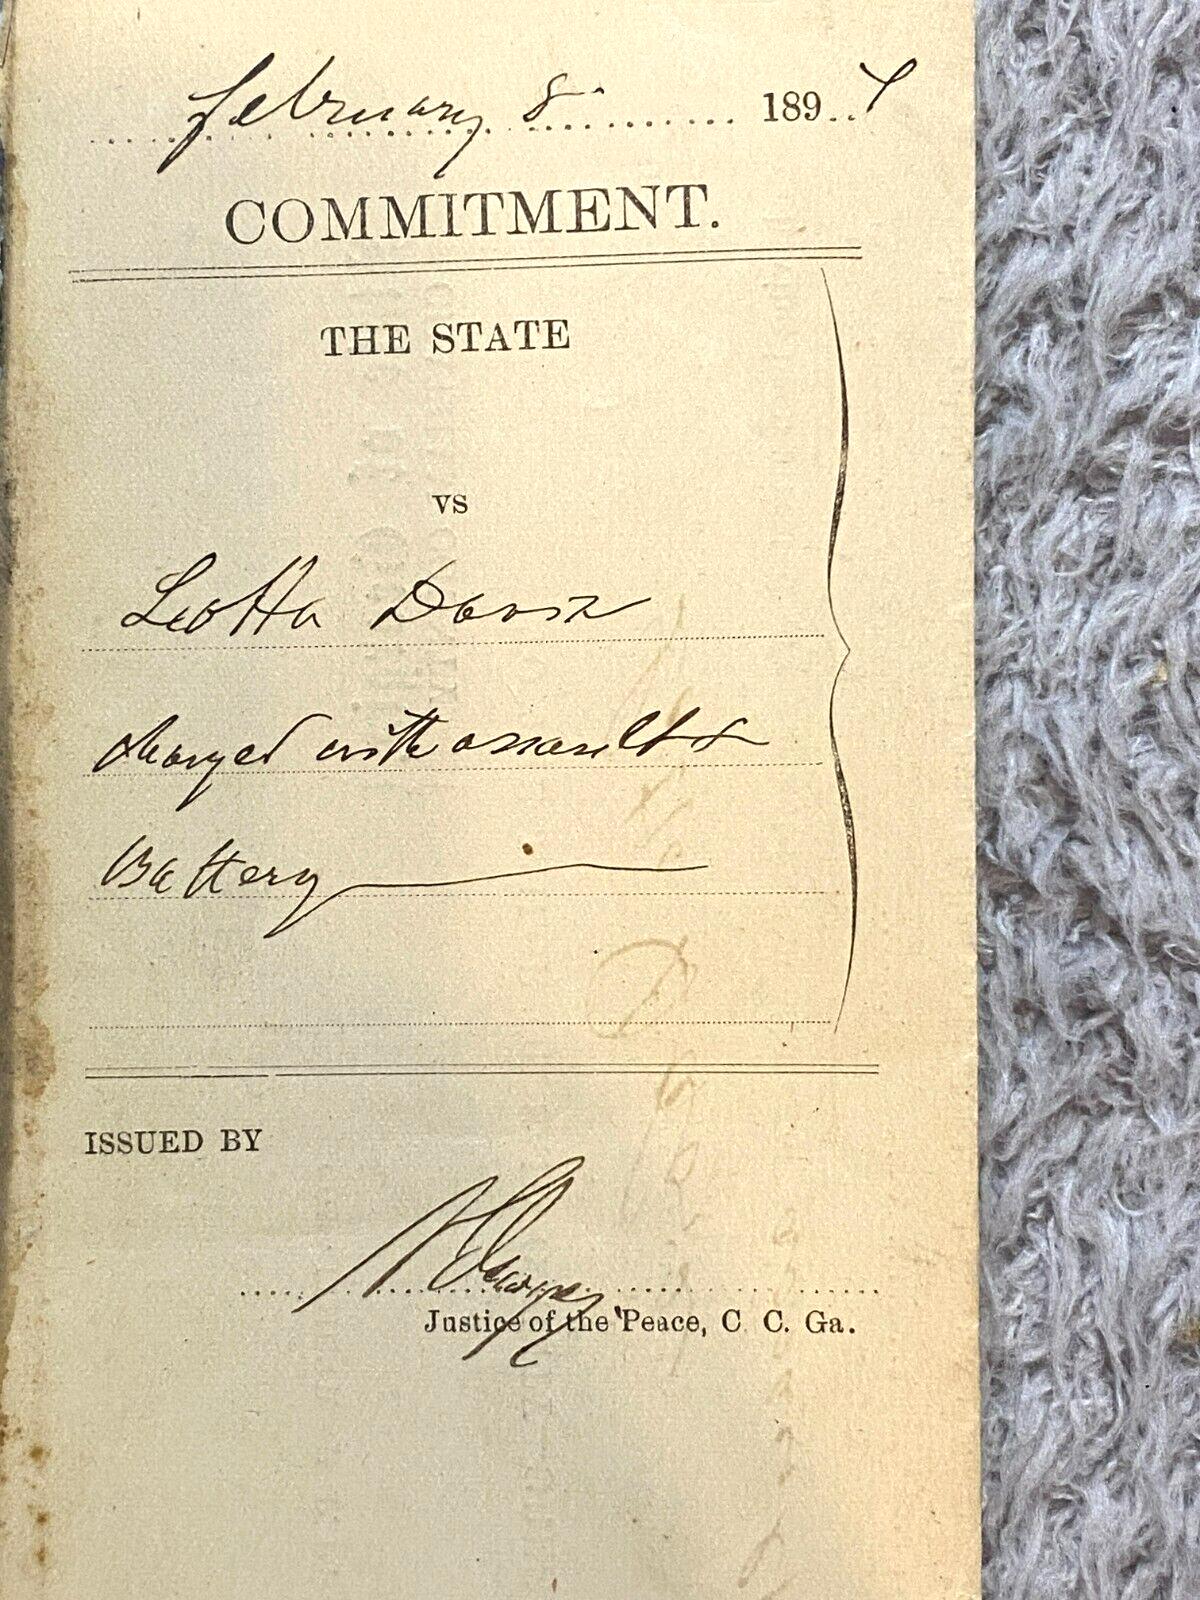 February 8 1894
COMMITMENT.
THE STATE
vs
Leotta Davis
charged with assault &
Battery
ISSUED BY
Justice of the Peace, C. C. Ga.